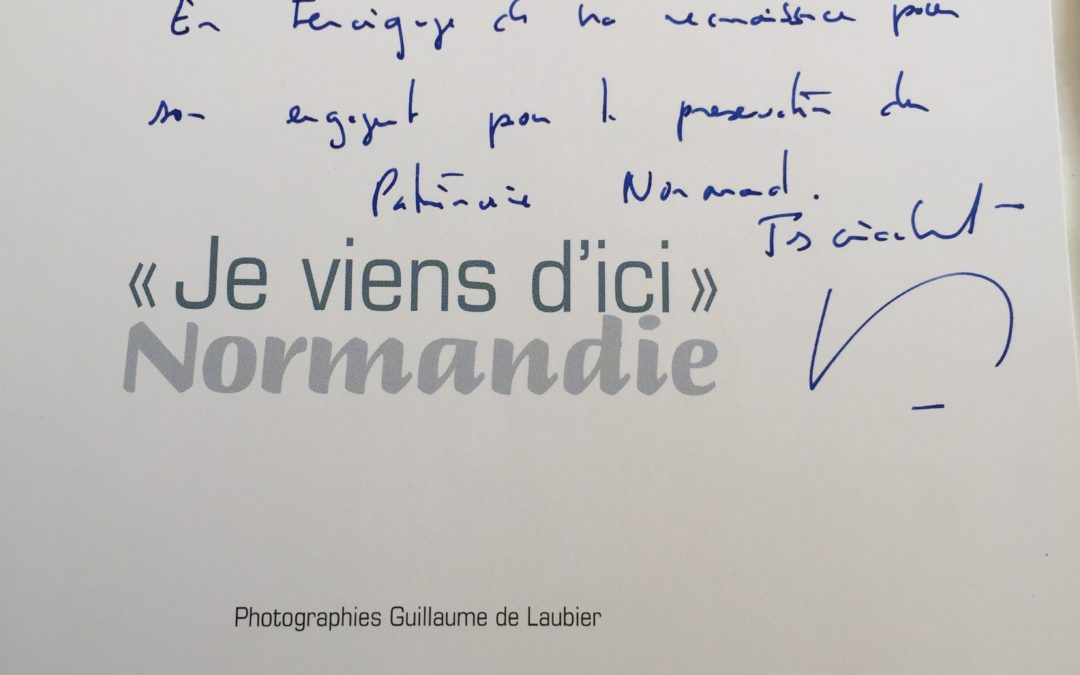 En Témoignage de ma reconnaissance pour
son engagement pour la préservation du
Patrimoine Normand.
Très cordialement
« Je viens d'ici »
Normandie
Photographies Guillaume de Laubier